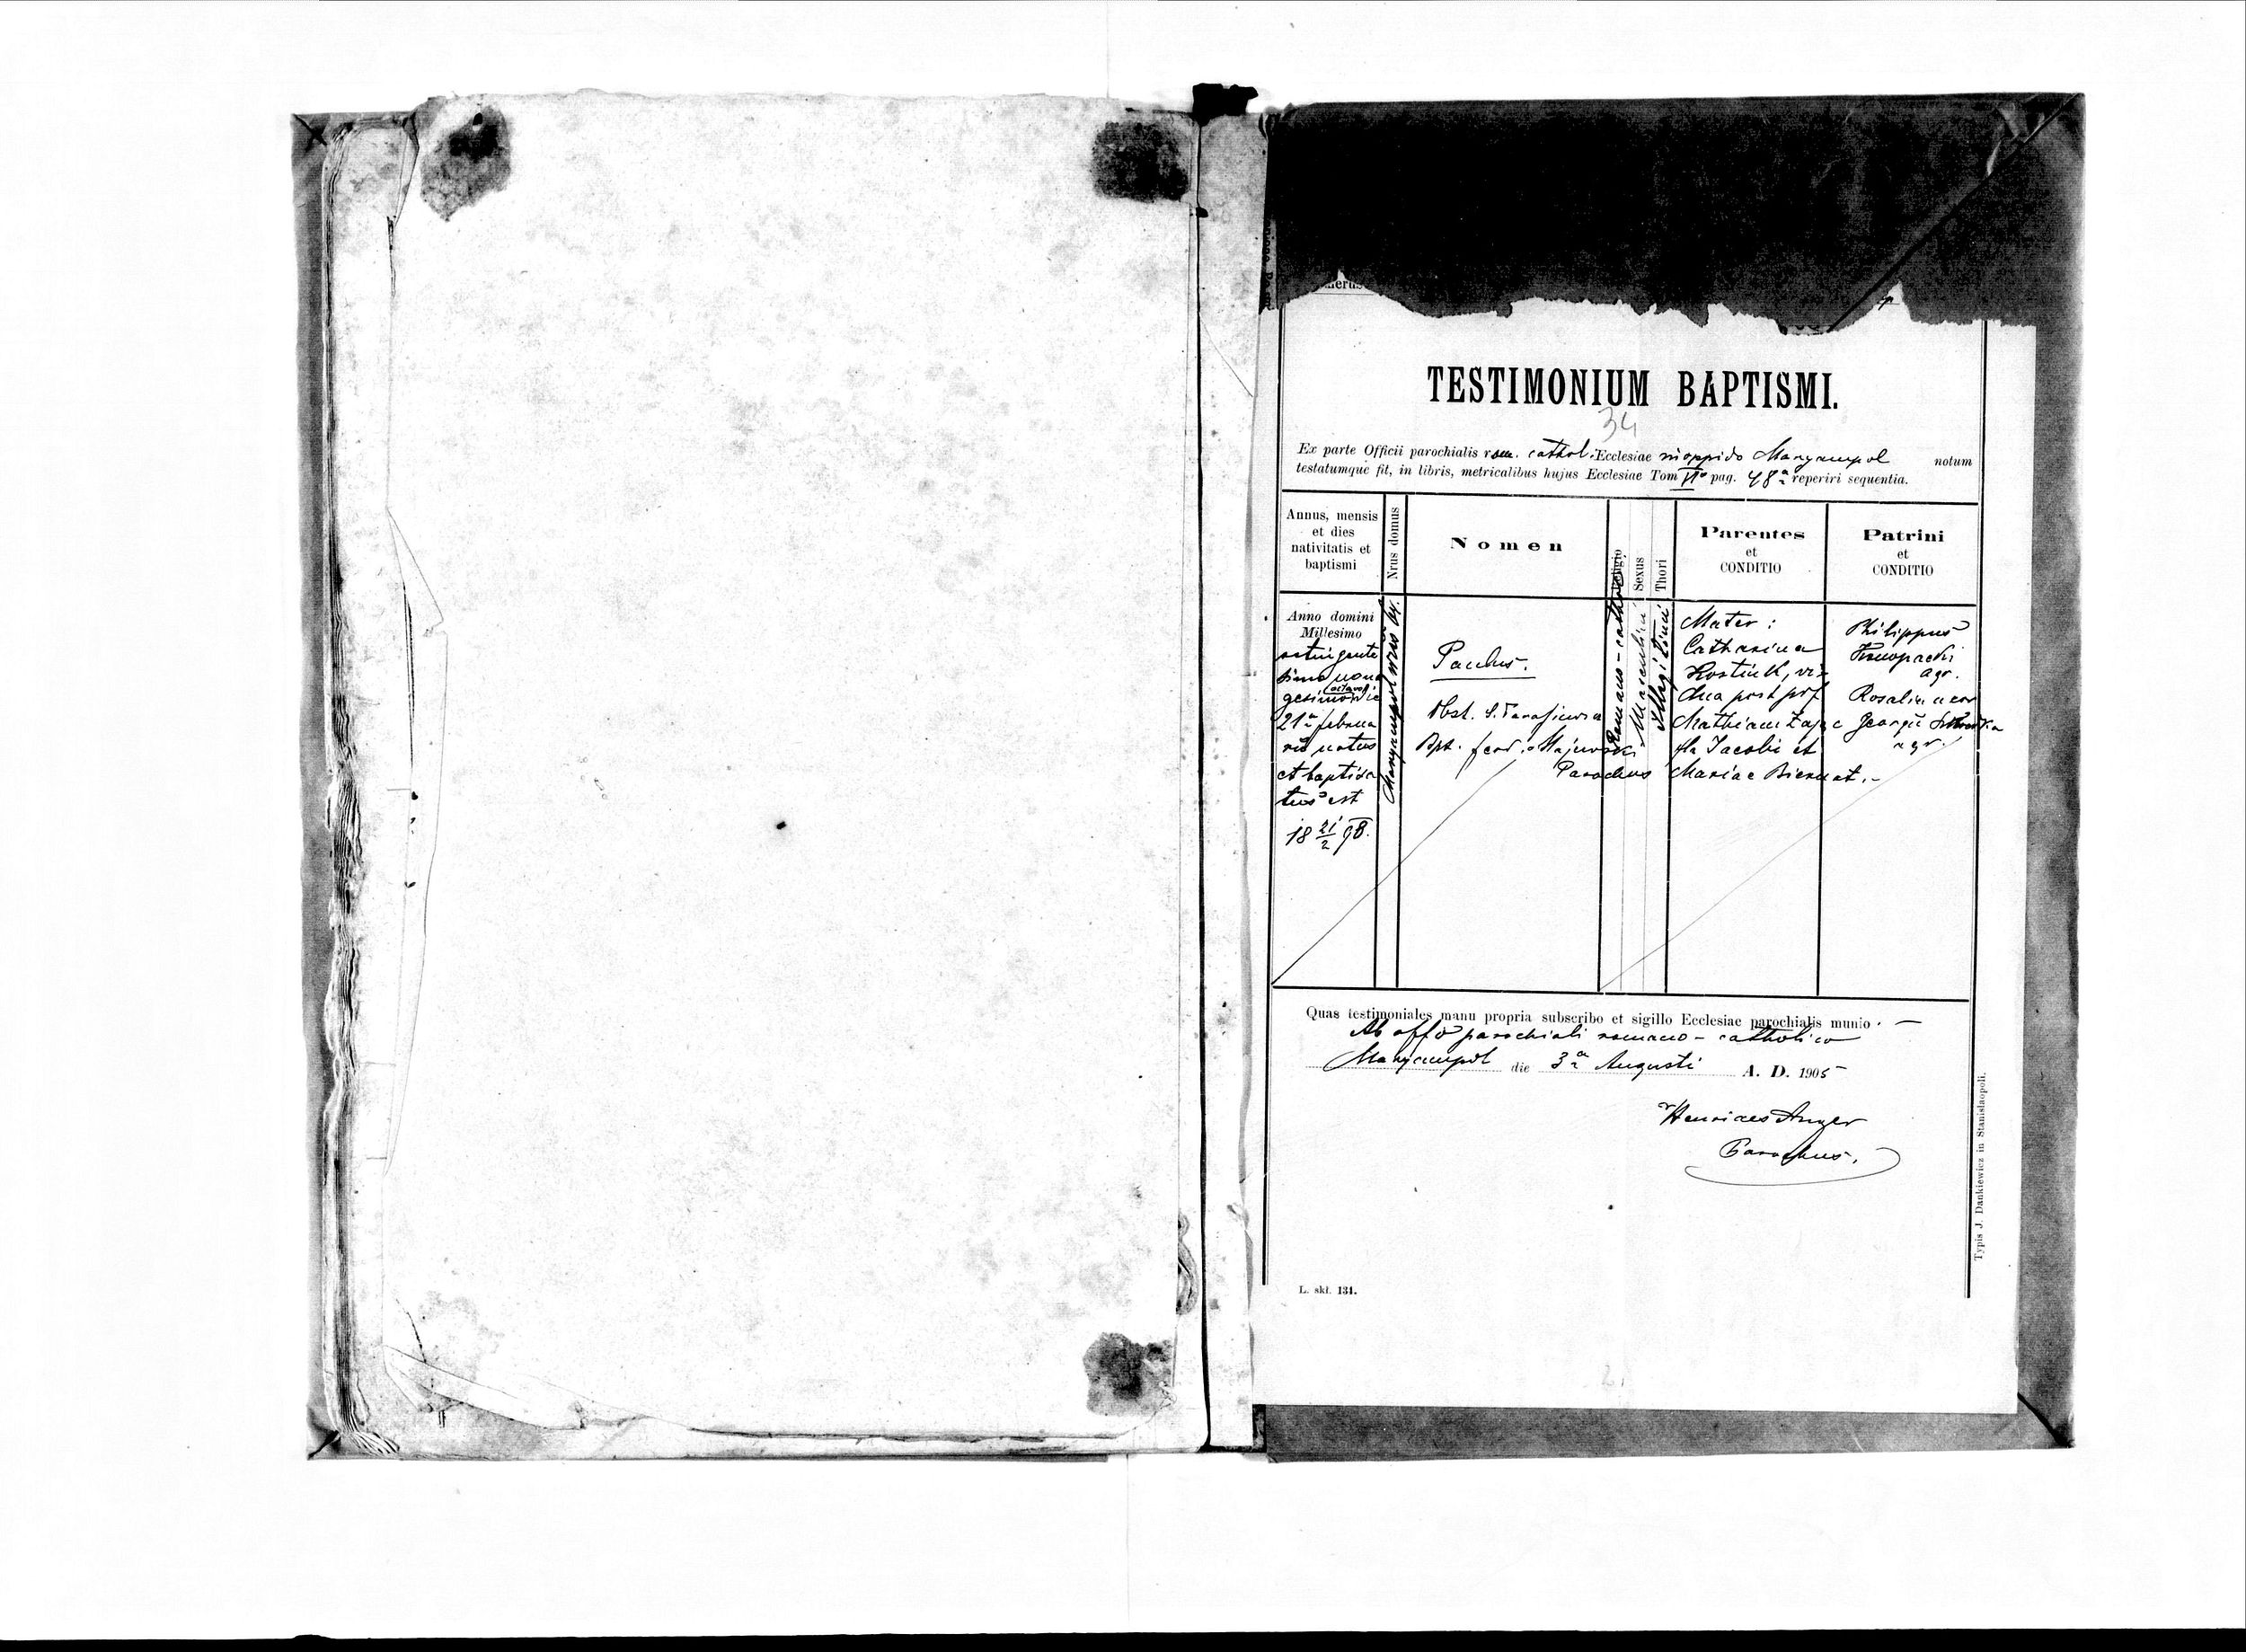 TESTIMONIUM BAPTISMI.
34
Ex parte Officii parochialis rom. cathol. Ecclesiae in oppido Maryampol notum
testatumque fit, in libris, metricalibus hujus Ecclesiae Tom VI° pag. 48ª reperiri sequentia.
Annus, mensis
et dies
nativitatis et
baptismi
Nrus domus
Nomen
Religio
Sexus
Thori
Parentes
et
CONDITIO
Patrini
et
CONDITIO
Anno domini
Millesimo
octingente
simo nona
gesimo octavo die
21ª februa
rii natus
et baptisa
tus est
18 21/2 98.
Maryampol nrus
Paulus.
Obst. S.
Bpt. Majewski
Parochus
Romano-cathol
Masculini
Illegitimi
Mater:
Catharina
Kostiuk, vi-
dua post
Mathiam Zając
fla Jacobi et
Mariae Biernat.-
Philippus
Konopacki
agr.
Rosalia uxor
Georgii
agr.
Quas testimoniales manu propria subscribo et sigillo Ecclesiae parochialis munio. —
Ab offo parochiali romano-catholico
Maryampol die 3ª Augusti A. D. 1905
Henricus Anger
Parochus.
L. skł. 134.
Typis J. Dankiewicz in Stanislaopoli.